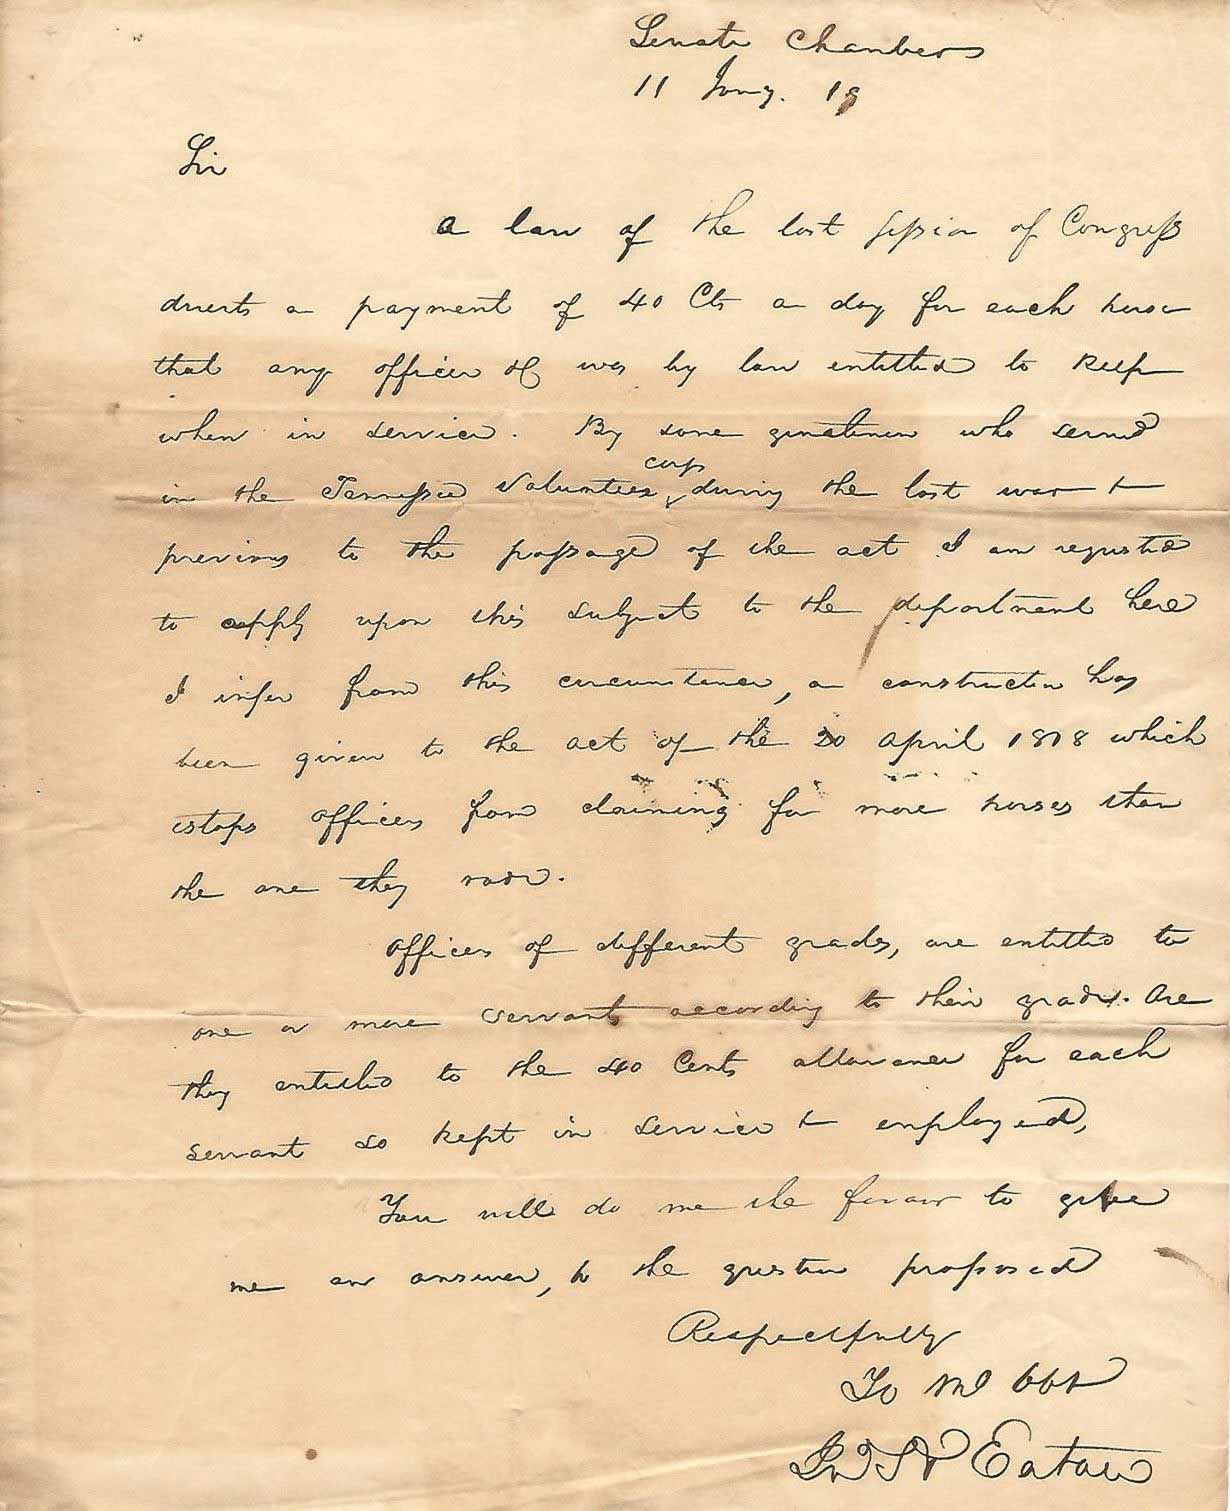 Senate Chambers
11 Jany. 19
Sir
a law of the last session of Congress
directs a payment of 40 Cts a day for each horse
that any officer was by law entitled to keep
when in service. By some gentlemen who served
in the Tennessee Volunteer corps during the last war &
previous to the passage of the act I am requested
to apply upon this subject to the department here
I infer from this circumstance, a construction has
been given to the act of the 20 april 1818 which
estops officers from claiming for more horses than
the one they rode.
Officers of different grades, are entitled to
one or more servants according to their grade. Are
they entitled to the 40 Cents allowance for each
servant so kept in service & employed,
You will do me the favour to give
me an answer, to the question proposed
Respectfully
Yo Mo Obt
Jno H Eaton